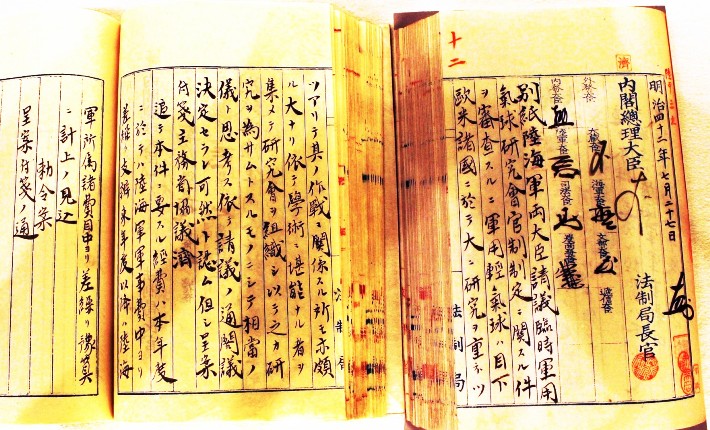 十二
明治四十二年七月二十七日
内閣總理大臣
法制局長官
外務大臣
大藏大臣
海軍大臣
文部大臣
遞信大臣
内務大臣
陸軍大臣
司法大臣
農商務大臣
別紙陸海軍両大臣請議臨時軍用
氣球研究會官制制定ニ關スル件
ヲ審査スルニ軍用輕氣球ハ目下
歐米諸國ニ於テ大ニ研究ヲ重ネツ
法制局
ツアリテ其ノ作戰ニ關係スル所モ亦頗
ル大ナリ依テ學術ニ堪能ナル者ヲ
集メテ研究會ヲ組織シ以テ之カ研
究ヲ為サムトスルモノニシテ相當ノ
儀ト思考ス依テ請議ノ通閣議
決定セラレ可然ト認ム但シ呈案
付箋主務省協議濟
追テ本件ニ要スル經費ハ本年度
ニ於テハ陸海軍軍事費中ヨリ
差繰支辨来年度以降ハ陸海
軍所属諸費目中ヨリ差繰リ豫算
ニ計上ノ見込
勅令案
呈案付箋ノ通